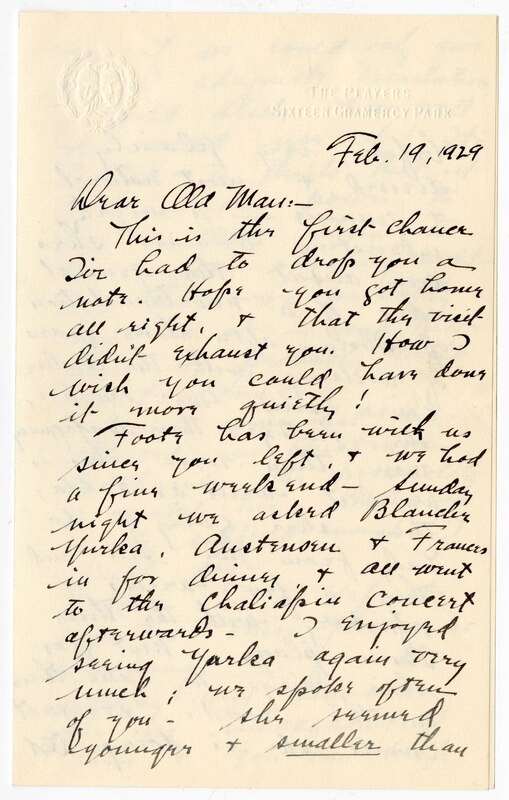 THE PLAYERS
SIXTEEN GRAMERCY PARK
Feb. 19, 1929
Dear Old Man:-
This is the first chance
I've had to drop you a
note. Hope you got home
all right, & that the visit
didn't exhaust you. How I
wish you could have done
it more quietly!
Foote has been with us
since you left, & we had
a fine weekend - Sunday
night we asked Blanche
Yurka, Austensen & Frances
in for dinner, & all went
to the Chaliapin concert
afterwards - I enjoyed
seeing Yurka again very
much; we spoke often
of you - she seemed
younger & smaller than